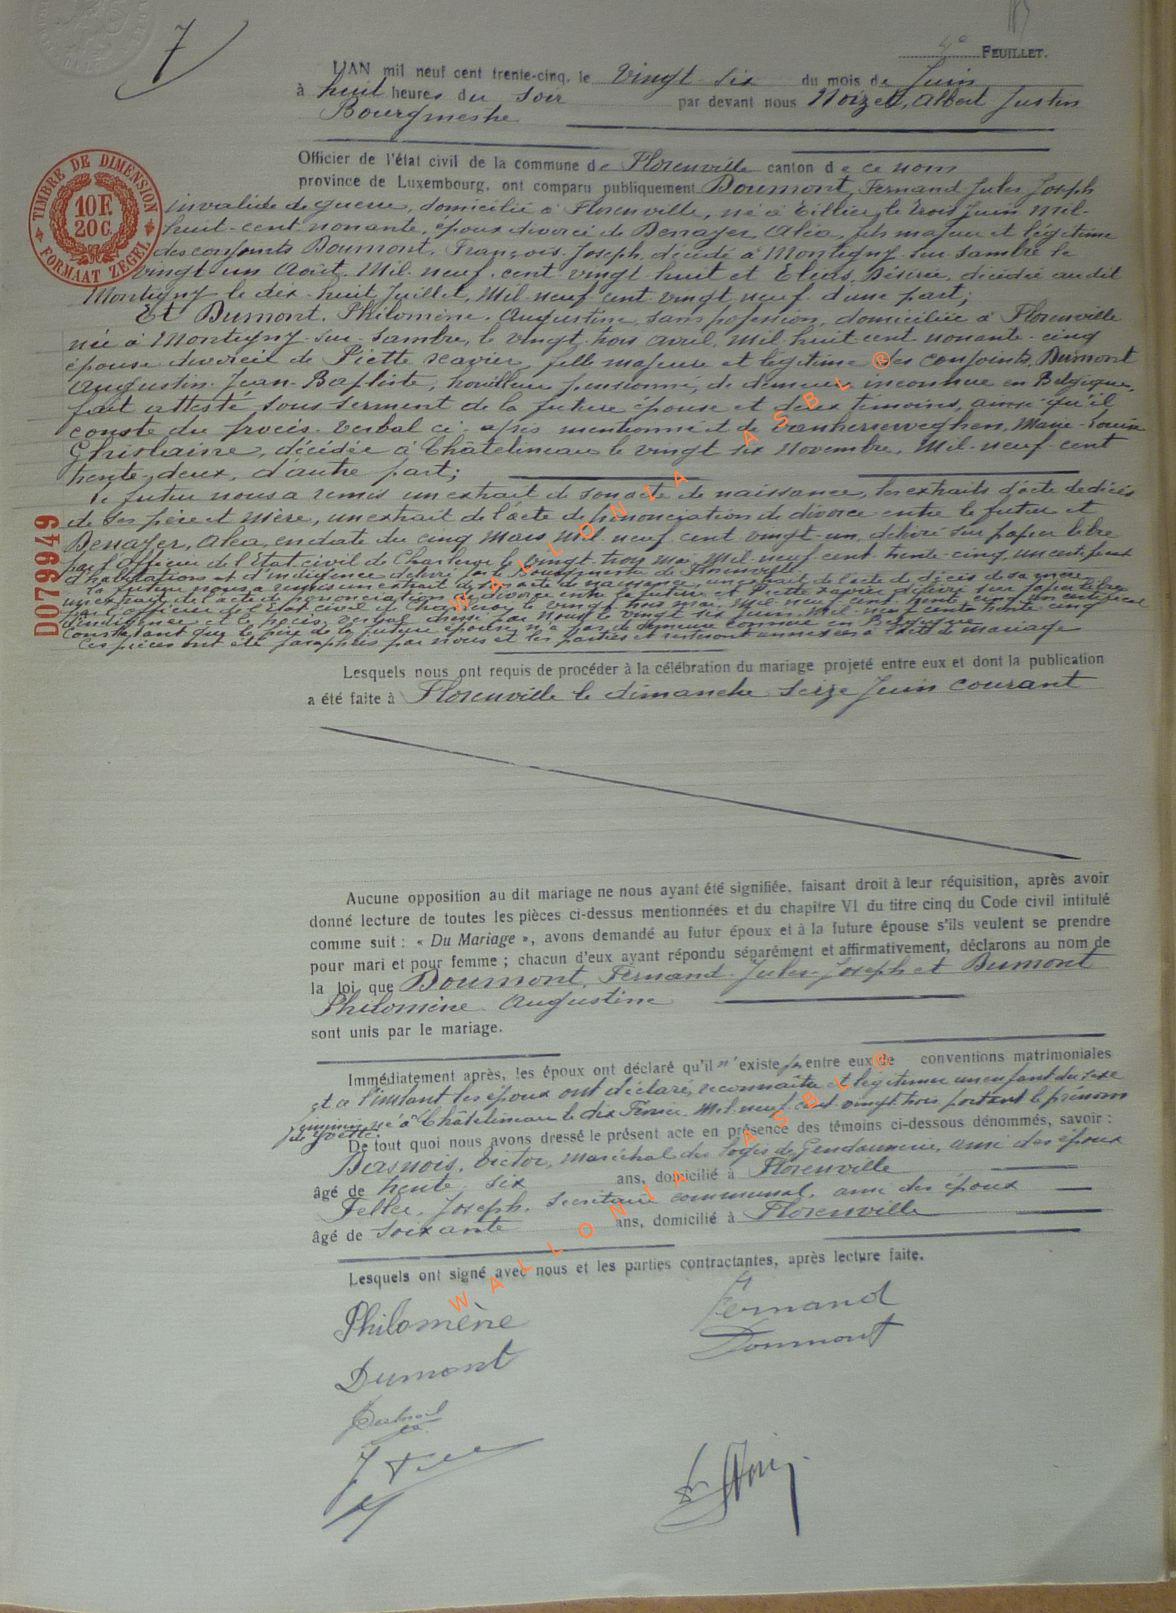 7
4e FEUILLET.
L'AN mil neuf cent trente-cinq, le vingt six du mois de Juin
à huit heures du soir par devant nous Noizet, Albert Justin
Bourgmestre
Officier de l'état civil de la commune de Florenville canton de ce nom
province de Luxembourg, ont comparu publiquement Doumont, Fernand Jules Joseph
TIMBRE DE DIMENSION
10F. 20C.
FORMAAT ZEGEL
invalide de guerre, domicilié à Florenville, né à Tillier, le trois Juin mil-
huit-cent nonante, époux divorcé de Denayer, Aléa, fils majeur et légitime
des conjoints Doumont, François-Joseph, décédé à Montigny-sur-Sambre le
vingt un Août, Mil-neuf-cent vingt huit et Désirée, décédée audit
Montigny le dix-huit Juillet, Mil-neuf cent vingt neuf d'une part;
Et Dumont, Philomène-Augustine, sans profession, domiciliée à Florenville
née à Montigny-sur-Sambre, le vingt-trois avril, mil huit cent nonante-cinq
épouse divorcée de Piette Xavier, fille majeure et légitime des conjoints Dumont
Augustin-Jean-Baptiste, houilleur pensionné, de demeure inconnue en Belgique,
fait attesté sous serment de la future épouse et deux témoins, ainsi qu'il
conste du procès-verbal ci-après mentionné et de Vanherreweghen, Marie-Louise
Ghislaine, décédée à Châtelineau le vingt six Novembre, Mil-neuf-cent
trente-deux, d'autre part;
Le futur nous a remis un extrait de son acte de naissance, les extraits d'acte de décès
de ses père et mère, un extrait de l'acte de prononciation de divorce entre le futur et
Denayer, Aléa, en date du cinq Mars Mil-neuf cent vingt-un, délivré sur papier libre
par l'Officier de l'État civil de Charleroi le vingt-trois mai Mil-neuf cent trente-cinq, un certificat
d'habitations et d'indigence délivré par le Bourgmestre de Florenville
La future nous a remis un extrait de son acte de naissance, un extrait de l'acte de décès de sa mère,
un extrait de l'acte de prononciation de divorce entre la future et Piette Xavier délivré sur papier libre
par l'officier de l'État civil de Charleroi le vingt trois mai, Mil-neuf cent trente cinq, un certificat
d'indigence et le procès-verbal dressé par Nous le vingt six Juin, Mil neuf cent trente cinq
constatant que le père de la future épouse n'a pas de demeure connue en Belgique
Ces pièces ont été paraphées par nous et les parties et resteront annexées à l'acte de mariage
D079949
Lesquels nous ont requis de procéder à la célébration du mariage projeté entre eux et dont la publication
a été faite à Florenville le dimanche seize Juin courant
Aucune opposition au dit mariage ne nous ayant été signifiée, faisant droit à leur réquisition, après avoir
donné lecture de toutes les pièces ci-dessus mentionnées et du chapitre VI du titre cinq du Code civil intitulé
comme suit : « Du Mariage », avons demandé au futur époux et à la future épouse s'ils veulent se prendre
pour mari et pour femme ; chacun d'eux ayant répondu séparément et affirmativement, déclarons au nom de
la loi que Doumont, Fernand-Jules-Joseph et Dumont
Philomène-Augustine
sont unis par le mariage.
Immédiatement après, les époux ont déclaré qu'il n'existe pas entre eux de conventions matrimoniales
et à l'instant les époux ont déclaré, reconnaître et légitimer un enfant du sexe
féminin né à Châtelineau le dix Février Mil-neuf-cent vingt trois portant le prénom
de Yvette.
De tout quoi nous avons dressé le présent acte en présence des témoins ci-dessous dénommés, savoir :
Victor, maréchal des logis de Gendarmerie, ami des époux
âgé de trente six ans, domicilié à Florenville
Feller, Joseph, Secrétaire communal, ami des époux
âgé de soixante ans, domicilié à Florenville
Lesquels ont signé avec nous et les parties contractantes, après lecture faite.
Philomène
Dumont
Fernand
Doumont
WALLONIA ASBL ®
WALLONIA ASBL ®